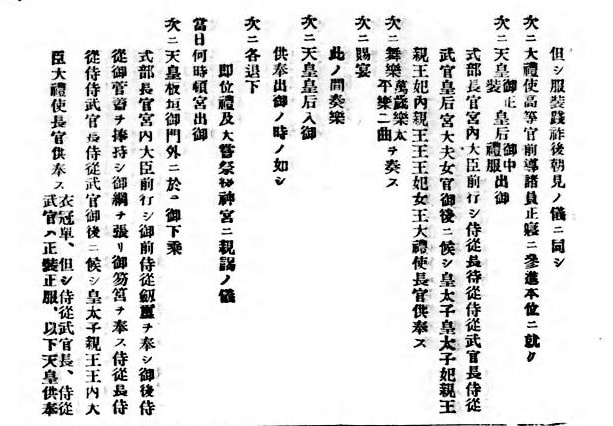 但シ服裝踐祚後朝見ノ儀ニ同シ
次ニ大禮使高等官前導諸員正寢ニ參進本位ニ就ク
次ニ天皇御正裝皇后御中禮服出御
式部長官宮內大臣前行シ侍從長侍從侍從武官長侍從
武官皇后宮大夫女官御後ニ候シ皇太子皇太子妃親王
親王妃內親王王王妃女王大禮使長官供奉ス
次ニ舞樂萬歲樂太平樂二曲ヲ奏ス
次ニ賜宴
此ノ間奏樂
次ニ天皇皇后入御
供奉出御ノ時ノ如シ
次ニ各退下
卽位禮及大嘗祭後神宮ニ親謁ノ儀
當日何時頓宮出御
次ニ天皇板垣御門外ニ於テ御下乘
式部長官宮內大臣前行シ御前侍從劒璽ヲ奉シ御後侍
從御菅蓋ヲ捧持シ御綱ヲ張リ御笏筥ヲ奉ス侍從長侍
從侍從武官長侍從武官御後ニ候シ皇太子親王王內大
臣大禮使長官供奉ス衣冠單、但シ侍從武官長、侍從武官ハ正裝正服、以下天皇供奉